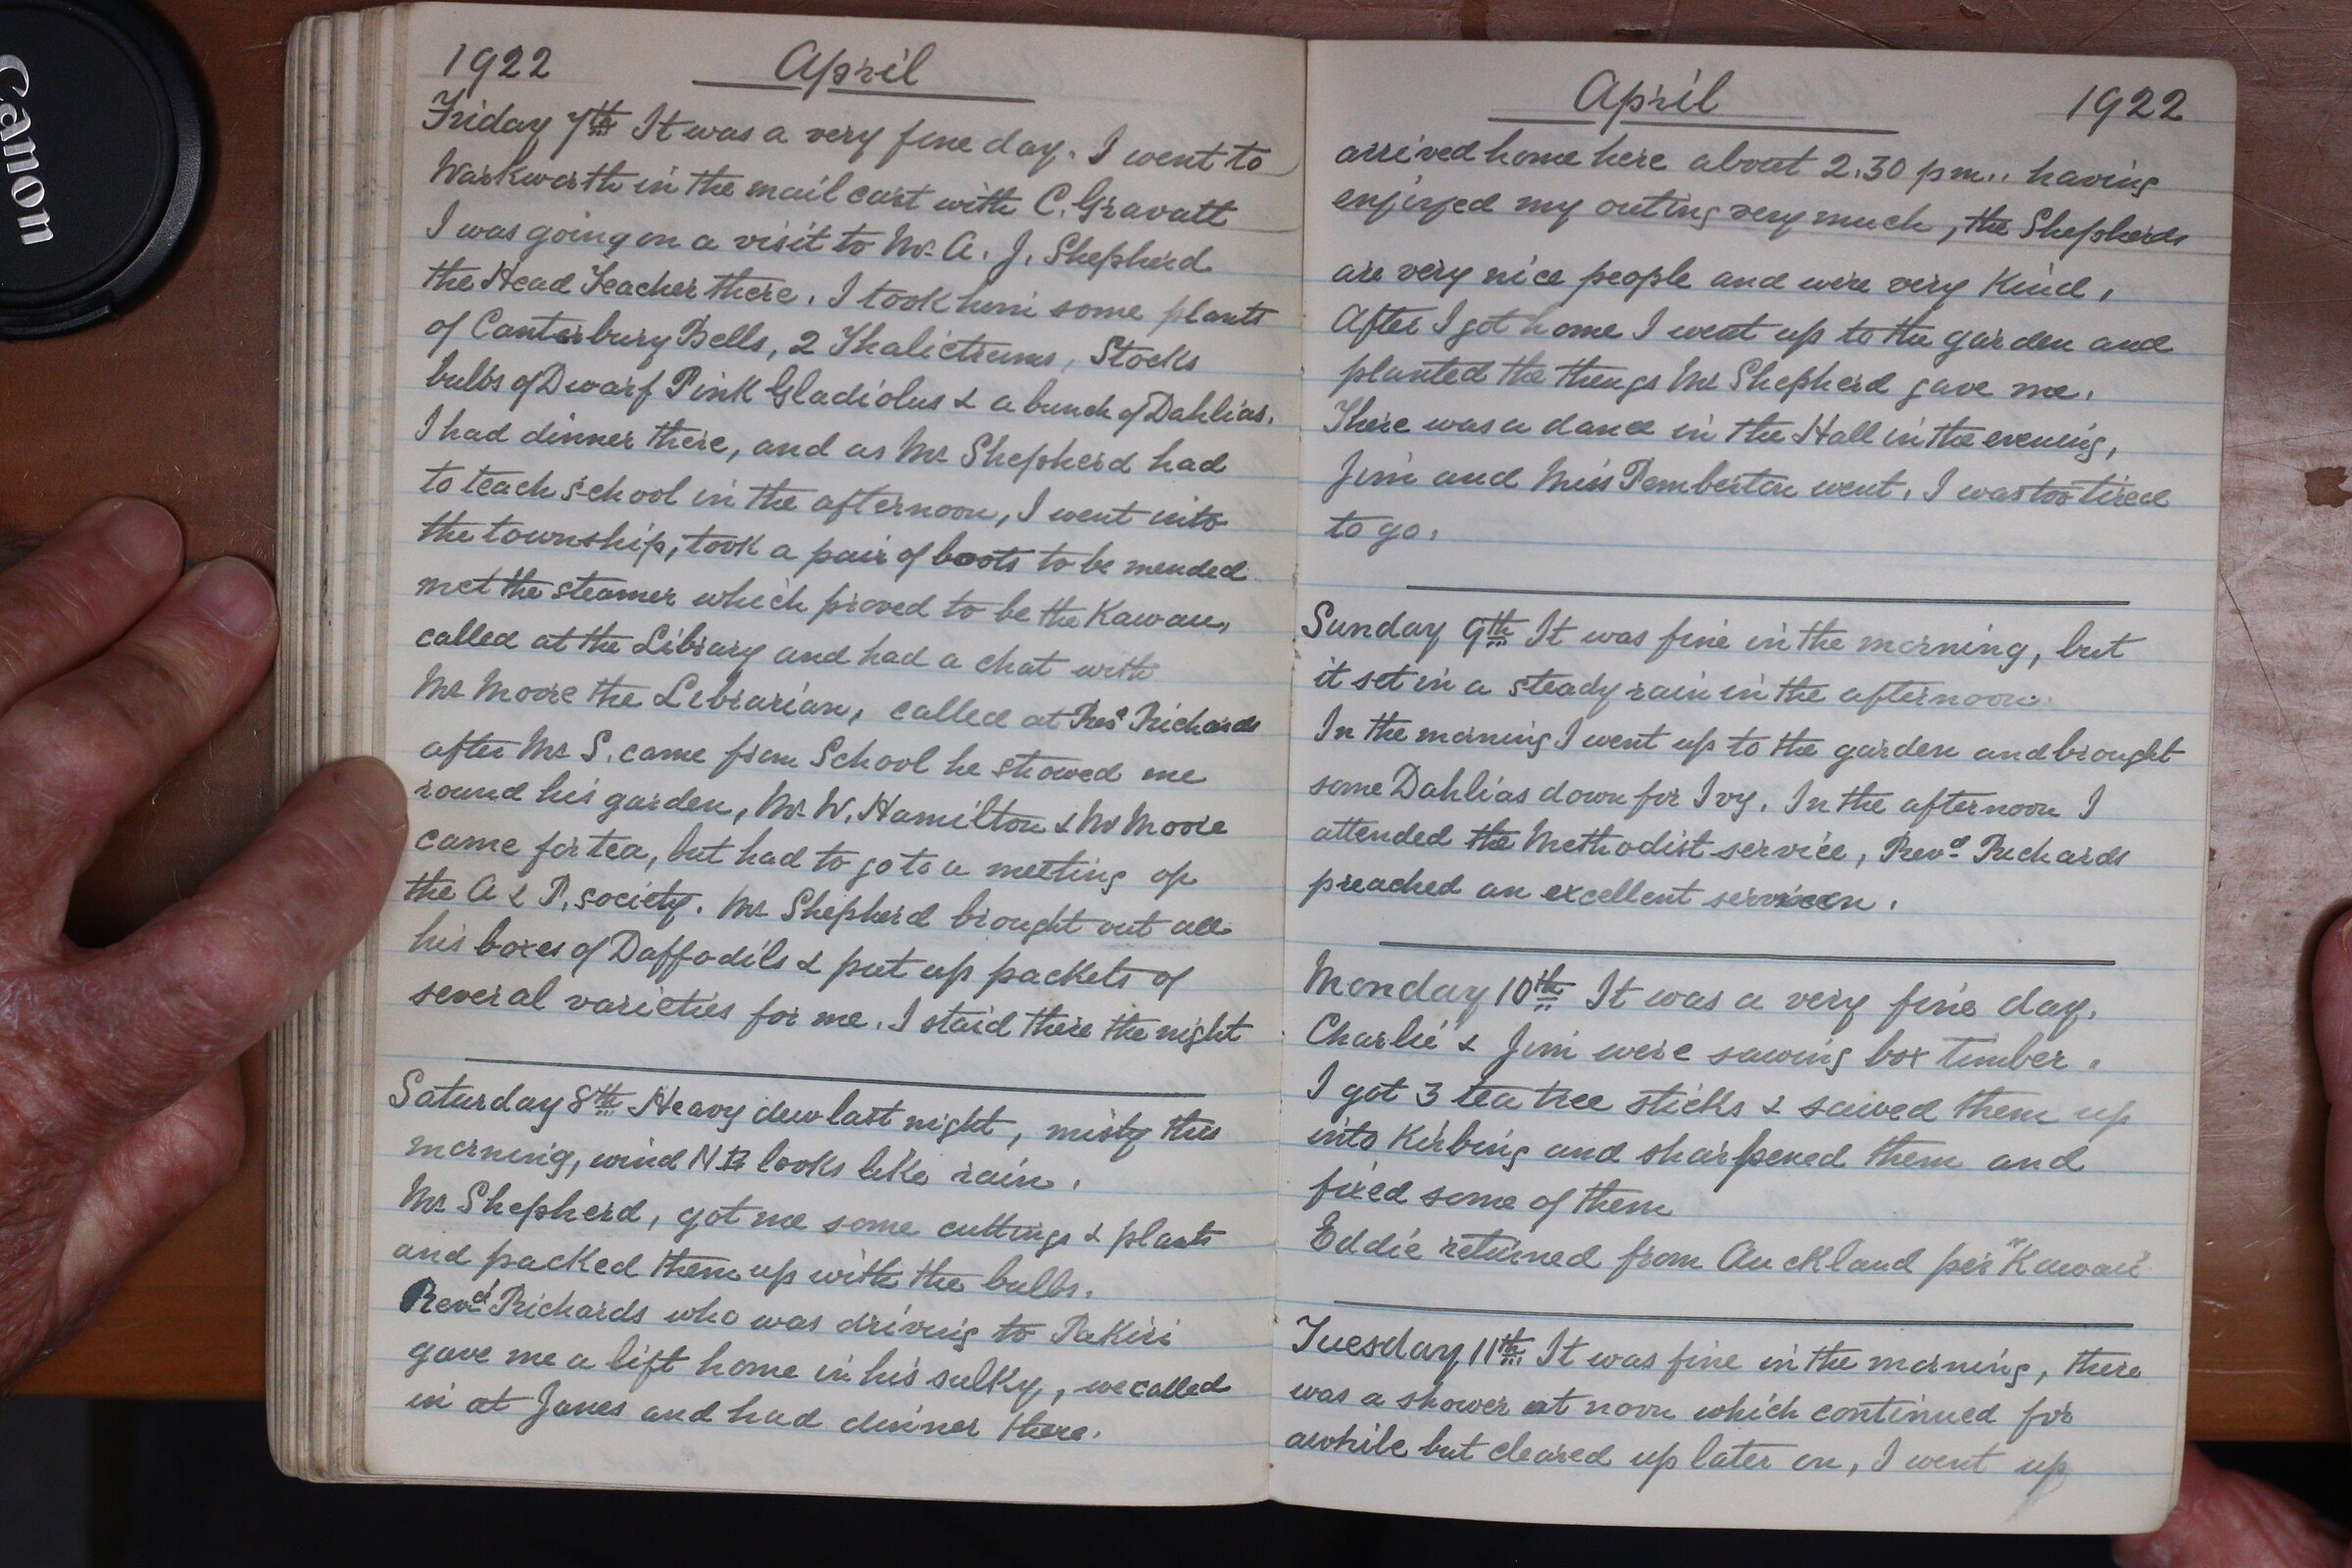 Canon
1922 April
Friday 7th It was a very fine day. I went to
Warkworth in the mail cart with C. Gravatt
I was going on a visit to Mr. A. J. Shepherd
the Head Teacher there. I took him some plants
of Canterbury Bells, 2 Thalictrums, Stocks
bulbs of Dwarf Pink Gladiolus & a bunch of Dahlias.
I had dinner there, and as Mr Shepherd had
to teach school in the afternoon, I went into
the township, took a pair of boots to be mended
met the steamer which proved to be the Kawau,
called at the Library and had a chat with
Mr Moore the Librarian, called at Revd Richards
after Mr S. came from School he showed me
round his garden, Mr W. Hamilton & Mr Moore
came for tea, but had to go to a meeting of
the A & P. society. Mr Shepherd brought out all
his boxes of Daffodils & put up packets of
several varieties for me. I staid there the night
Saturday 8th Heavy dew last night, misty this
morning, wind N E looks like rain.
Mr Shepherd, got me some cuttings & plants
and packed them up with the bulbs.
Revd Richards who was driving to Pakiri
gave me a lift home in his sulky, we called
in at Janes and had dinner there.
April 1922
arrived home here about 2.30 pm.. having
enjoyed my outing very much, the Shepherds
are very nice people and were very kind.
After I got home I went up to the garden and
planted the things Mr Shepherd gave me.
There was a dance in the Hall in the evening,
Jim and Miss Pemberton went. I was too tired
to go.
Sunday 9th It was fine in the morning, but
it set in a steady rain in the afternoon.
In the morning I went up to the garden and brought
some Dahlias down for Ivy. In the afternoon I
attended the Methodist service, Revd. Richards
preached an excellent sermon.
Monday 10th It was a very fine day.
Charlie & Jim were sawing box timber.
I got 3 tea tree sticks & sawed them up
into Kirbing and sharpened them and
fixed some of them
Eddie returned from Auckland per "Kawau"
Tuesday 11th It was fine in the morning, there
was a shower at noon which continued for
awhile but cleared up later on, I went up